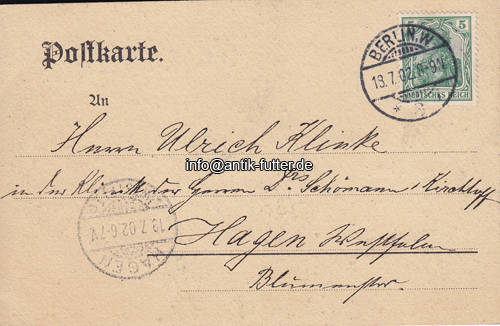 Postkarte.
BERLIN. W.
13.7.02. 8-9V.
5 5
DEUTSCHES REICH
An
Herrn Ulrich Klinke
info@antik-futter.de
in der Klinik der Herren Drs Schömann & Kirchhoff
Hagen Westfalen
Blumenstr.
HAGEN
13.7.02.6-7V.